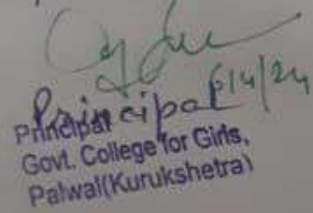 Principal 6/4/24
Principal
Govt. College for Girls,
Palwal(Kurukshetra)